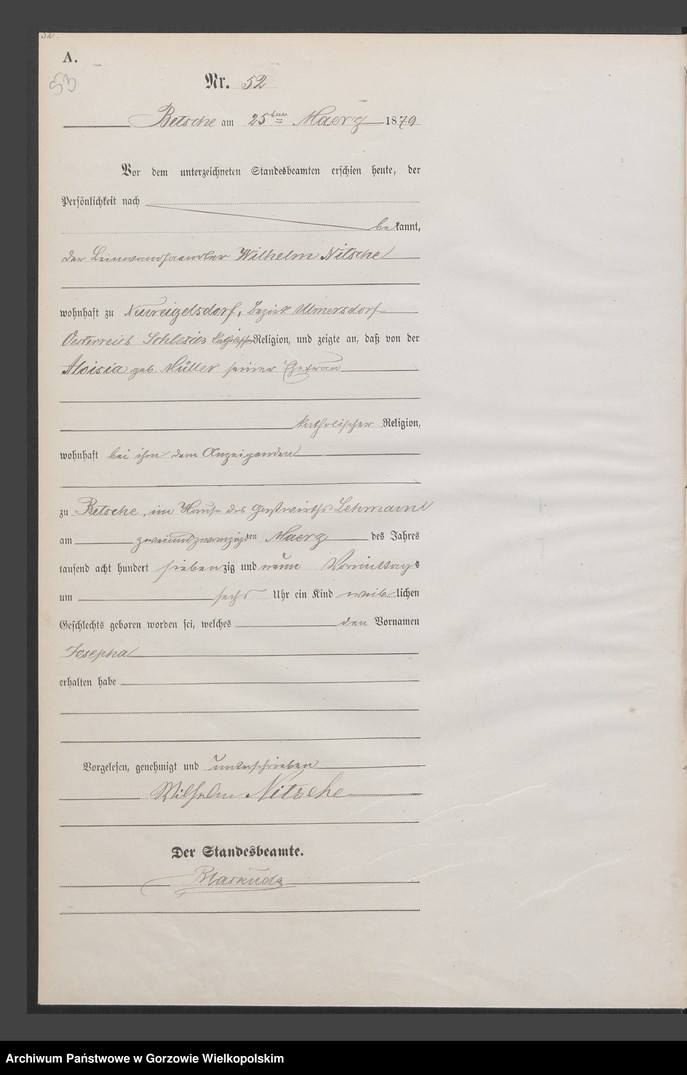 52.
A.
53
Nr. 52
Betsche am 25ten Maerz 1879
Vor dem unterzeichneten Standesbeamten erschien heute, der
Persönlichkeit nach
bekannt,
der Leinwandhaendler Wilhelm Nitsche
wohnhaft zu Neureigelsdorf, Bezirk Ulmersdorf
Oesterreich Schlesien kathol. Religion, und zeigte an, daß von der
Aloisia geb. Müller seiner Ehefrau
katholischer Religion,
wohnhaft bei ihm dem Anzeigenden
zu Betsche, im Hause des Gastwirths Lehmann
am zweiundzwanzigsten Maerz des Jahres
tausend acht hundert siebenzig und neun Vormittags
um sechs Uhr ein Kind weiblichen
Geschlechts geboren worden sei, welches den Vornamen
Josepha
erhalten habe
Vorgelesen, genehmigt und unterschrieben
Wilhelm Nitsche
Der Standesbeamte.
Archiwum Państwowe w Gorzowie Wielkopolskim